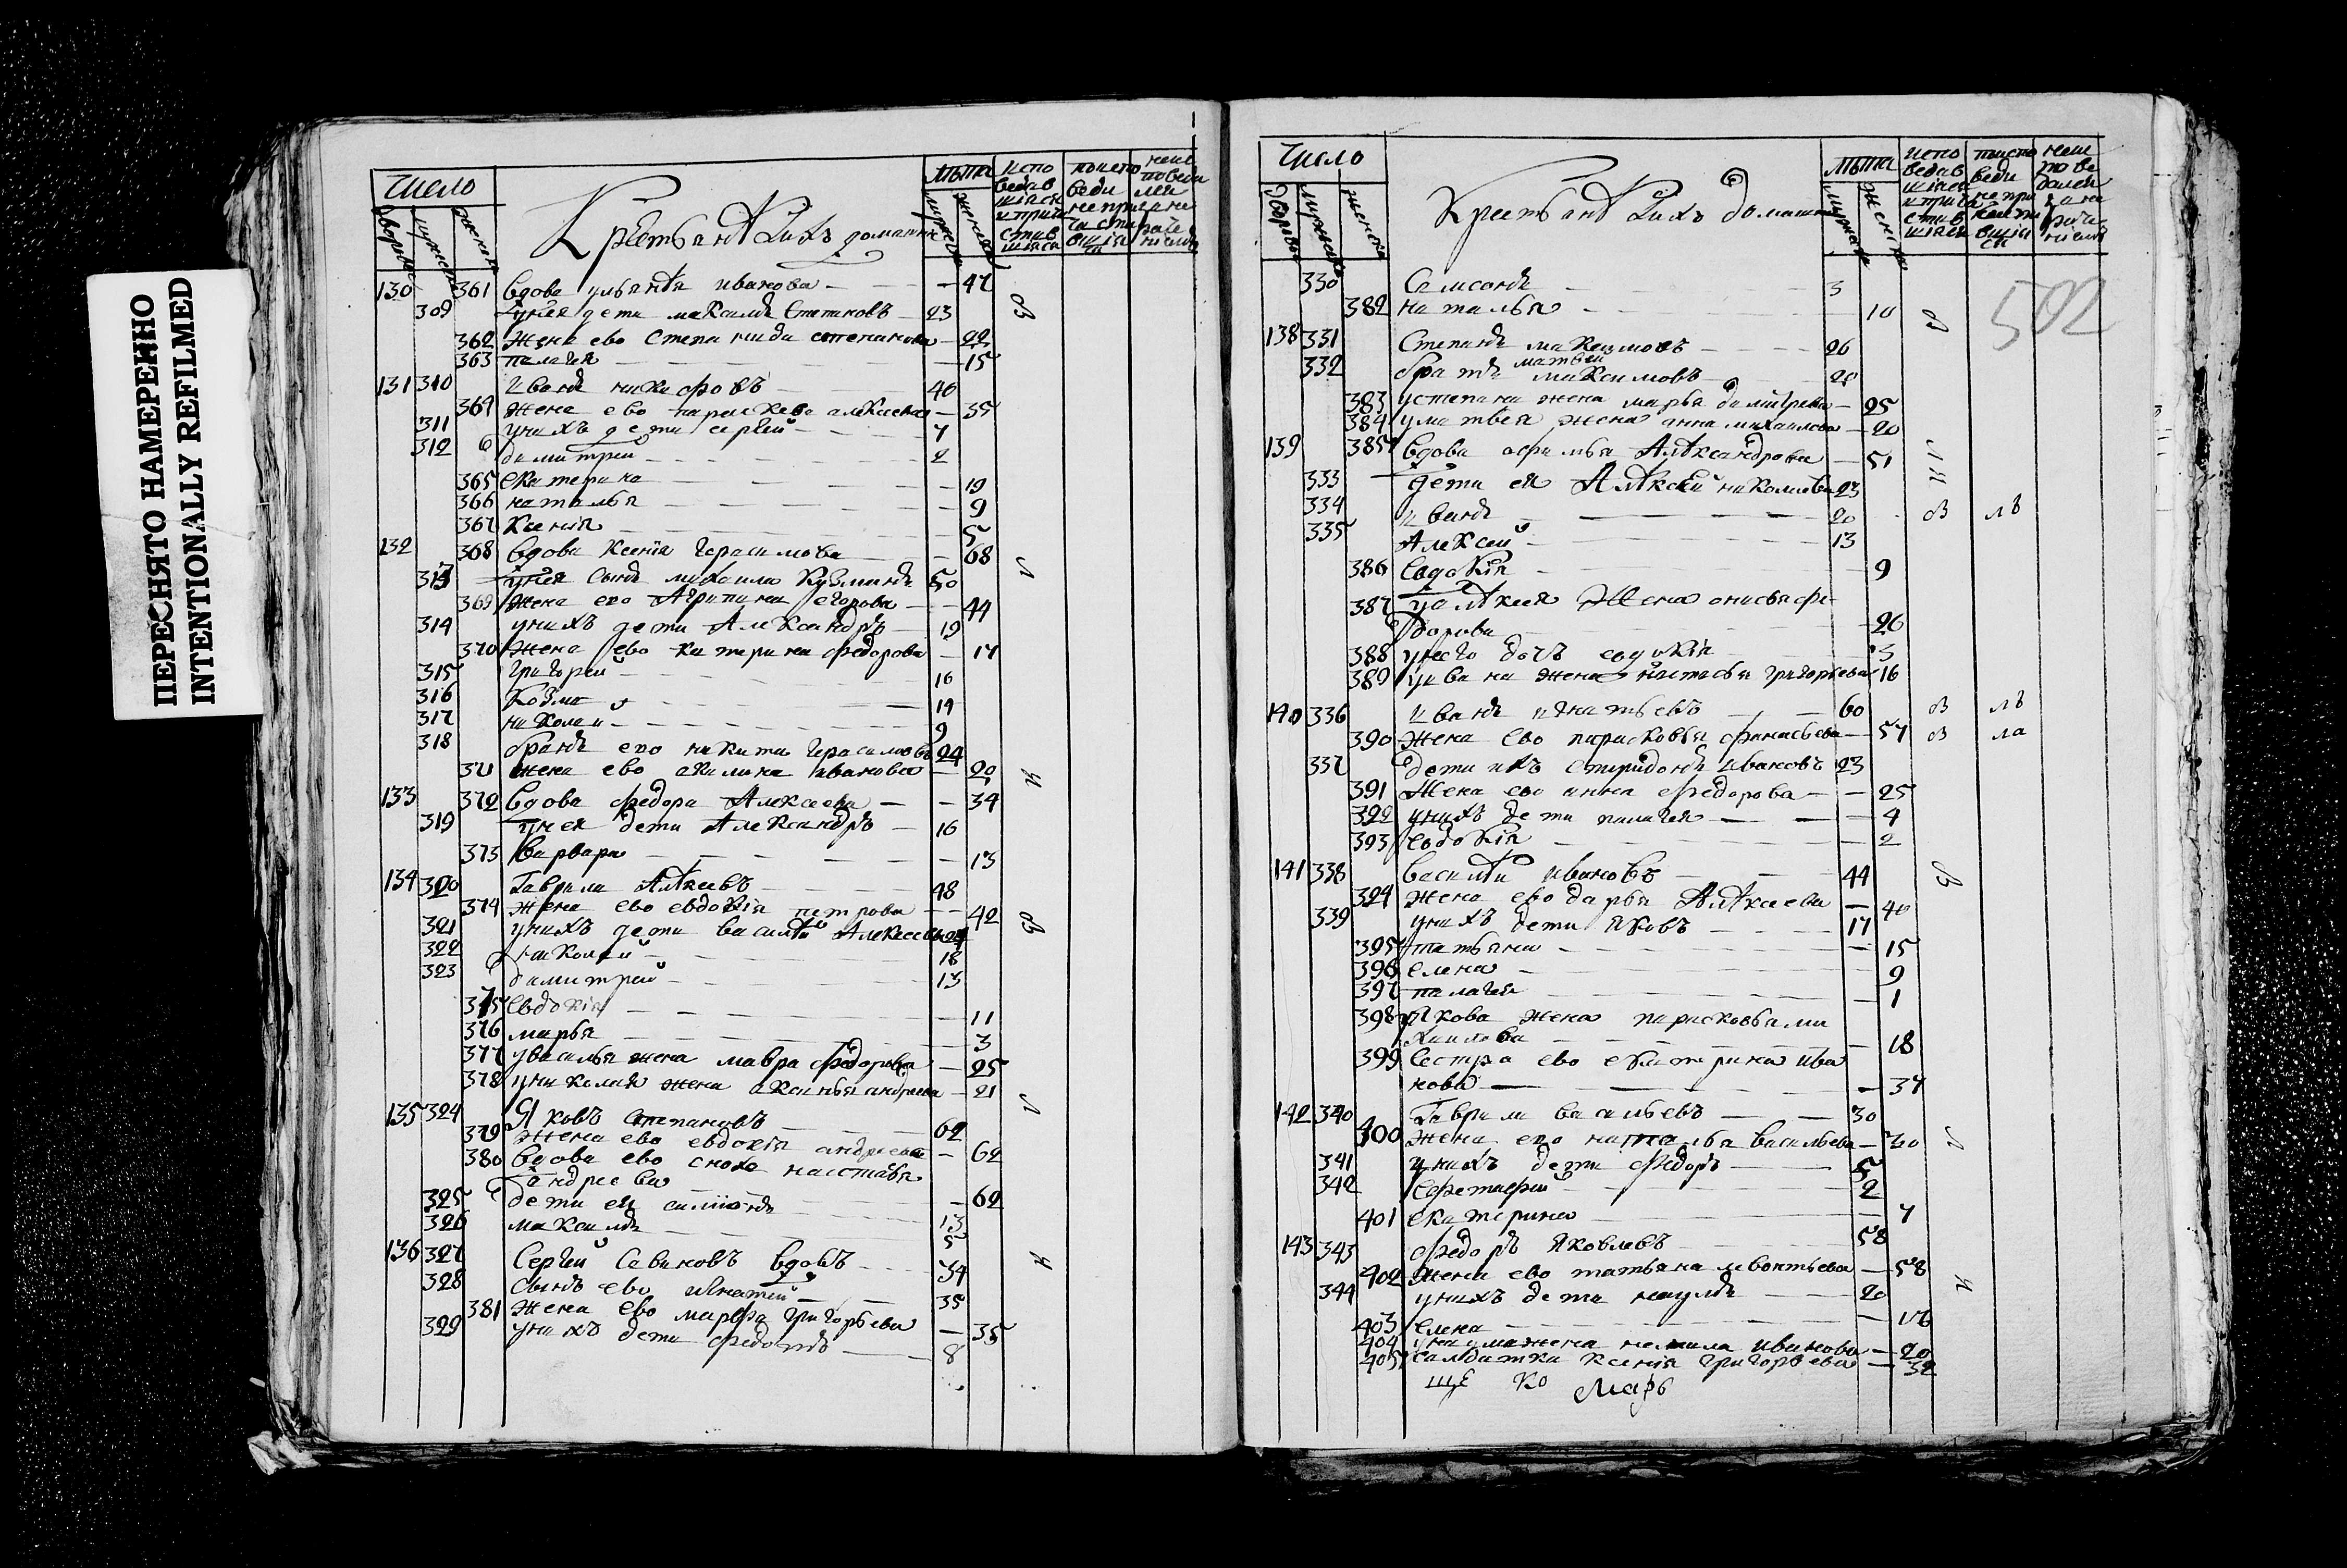 ПЕРЕСНЯТО НАМЕРЕННО
INTENTIONALLY REFILMED
Число Крестьянскихъ домашнѣ Лѣта
130 361 вдова ульяна иванова 47
309 у нея дети максимъ Степановъ 23
362 Жена ево Степанида степанова 22
363 палагея 15
131 310 Иванъ никифоровъ 40
364 жена ево параскева алексеева 35
311 у нихъ дети сергей 7
312 димитрей 2
365 екатерина 19
366 наталья 9
367 Ксенiя 5
132 368 вдова Ксенiя Герасимова 68
313 у нея Сынъ михаило Кузминъ 50
369 жена ево Агрипина егорова 44
314 у нихъ дети Александръ 19
370 жена ево катерина федорова 17
315 григорей 16
316 Козма 14
317 николай 9
318 братъ ево никита Герасимовъ 24
371 жена ево акилина иванова 20
133 372 вдова федора Алексеева 34
319 у нея дети Александръ 16
373 варвара 13
134 320 Гаврила Алѯеевъ 48
374 жена ево евдокiя петрова 42
321 у нихъ дети василѣй Алексеевъ 24
322 николай 18
323 димитрей 13
375 Евдокiя 11
376 марья 3
377 у василья жена мавра федорова 25
378 у николая жена аксинья андреева 21
135 324 Яковъ Степановъ 62
379 жена ево евдокiя андреева 62
380 вдова ево сноха настасья
андреева 62
325 дети ея симiонъ 13
326 максимъ 5
136 327 Сергей Савиновъ вдовъ 54
328 Сынъ ево игнатей 35
381 жена ево марфа григорьева 35
329 у нихъ дети федотъ 8
Число Крестьянскихъ домашнѣ Лѣта
502
330 Самсонъ 3
382 наталья 10
138 331 Степанъ максимовъ 26
332 братъ матвей максимовъ 20
383 у степана жена марья димитрева 25
384 у матвея жена анна михаилова 20
139 385 вдова афимья Александрова 51
333 дети ея Алѯей николаевъ 23
334 Иванъ 20
335 Алексей 13
386 Евдокiя 9
387 у алѯея жена анисья фе
дорова 26
388 у него дочь евдокiя 3
389 у ивана жена настасья григорьева 16
140 336 Иванъ игнатьевъ 60
390 жена ево парасковья афанасьева 57
337 дети ихъ спиридонъ Ивановъ 23
391 жена ево анна федорова 25
392 у нихъ дети палагея 4
393 Евдокiя 2
141 338 василѣй ивановъ 44
394 жена ево дарья Алѯеева 40
339 у нихъ дети яковъ 17
395 татьяна 15
396 елена 9
397 палагея 1
398 у якова жена парасковья ми
хаилова 18
399 Сестра ево екатерина ива
нова 37
142 340 Гаврила васильевъ 30
400 жена ево наталья васильева 30
341 у нихъ дети федоръ 5
342 2
401 екатерина 7
143 343 федоръ яковлевъ 58
402 жена ево татьяна леонтьева 58
344 у нихъ дети наумъ 20
403 елена 16
404 у наума жена иванова 20
405 салдатка ксенiя григорьева 32